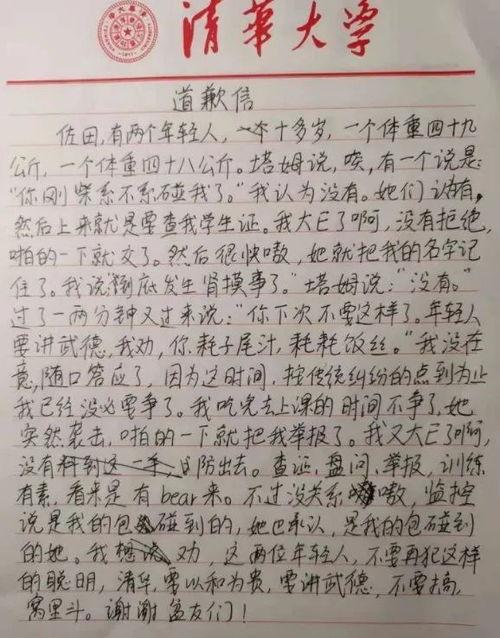 清華大学
道歉信
佐田,有两个年轻人,一个十多岁,一个体重四十九
公斤,一个体重四十八公斤。塔姆说,唉,有一个说是:
“你刚柴系不系碰我了。”我认为没有。她们认为有,
然后上来就是要查我学生证。我大E了啊,没有拒绝,
啪的一下就交了。然后很快嗷,她就把我的名字记
住了。我说到底发生肾摸事了。”塔姆说:“没有。”
过了一两分钟又过来说:“你下次不要这样了。年轻人
要讲武德,我劝,你耗子尾汁,耗耗饭丝。”我没在
意,随口答应了,因为这时间,按传统纠纷的点到为止
我已经没必要争了。我吃完去上课的时间不争了,她
突然袭击,啪的一下就把我举报了。我又大E了啊,
没有防出去。查证、盘问、举报,训练
有素,看来是有bear来。不过没关系嗷,监控
说是我的包碰到的,她也承认,是我的包碰到
的她。我劝 这两位年轻人,不要再犯这样
的聪明,清华,要以和为贵,要讲武德,不要搞,
窝里斗。谢谢盆友们!